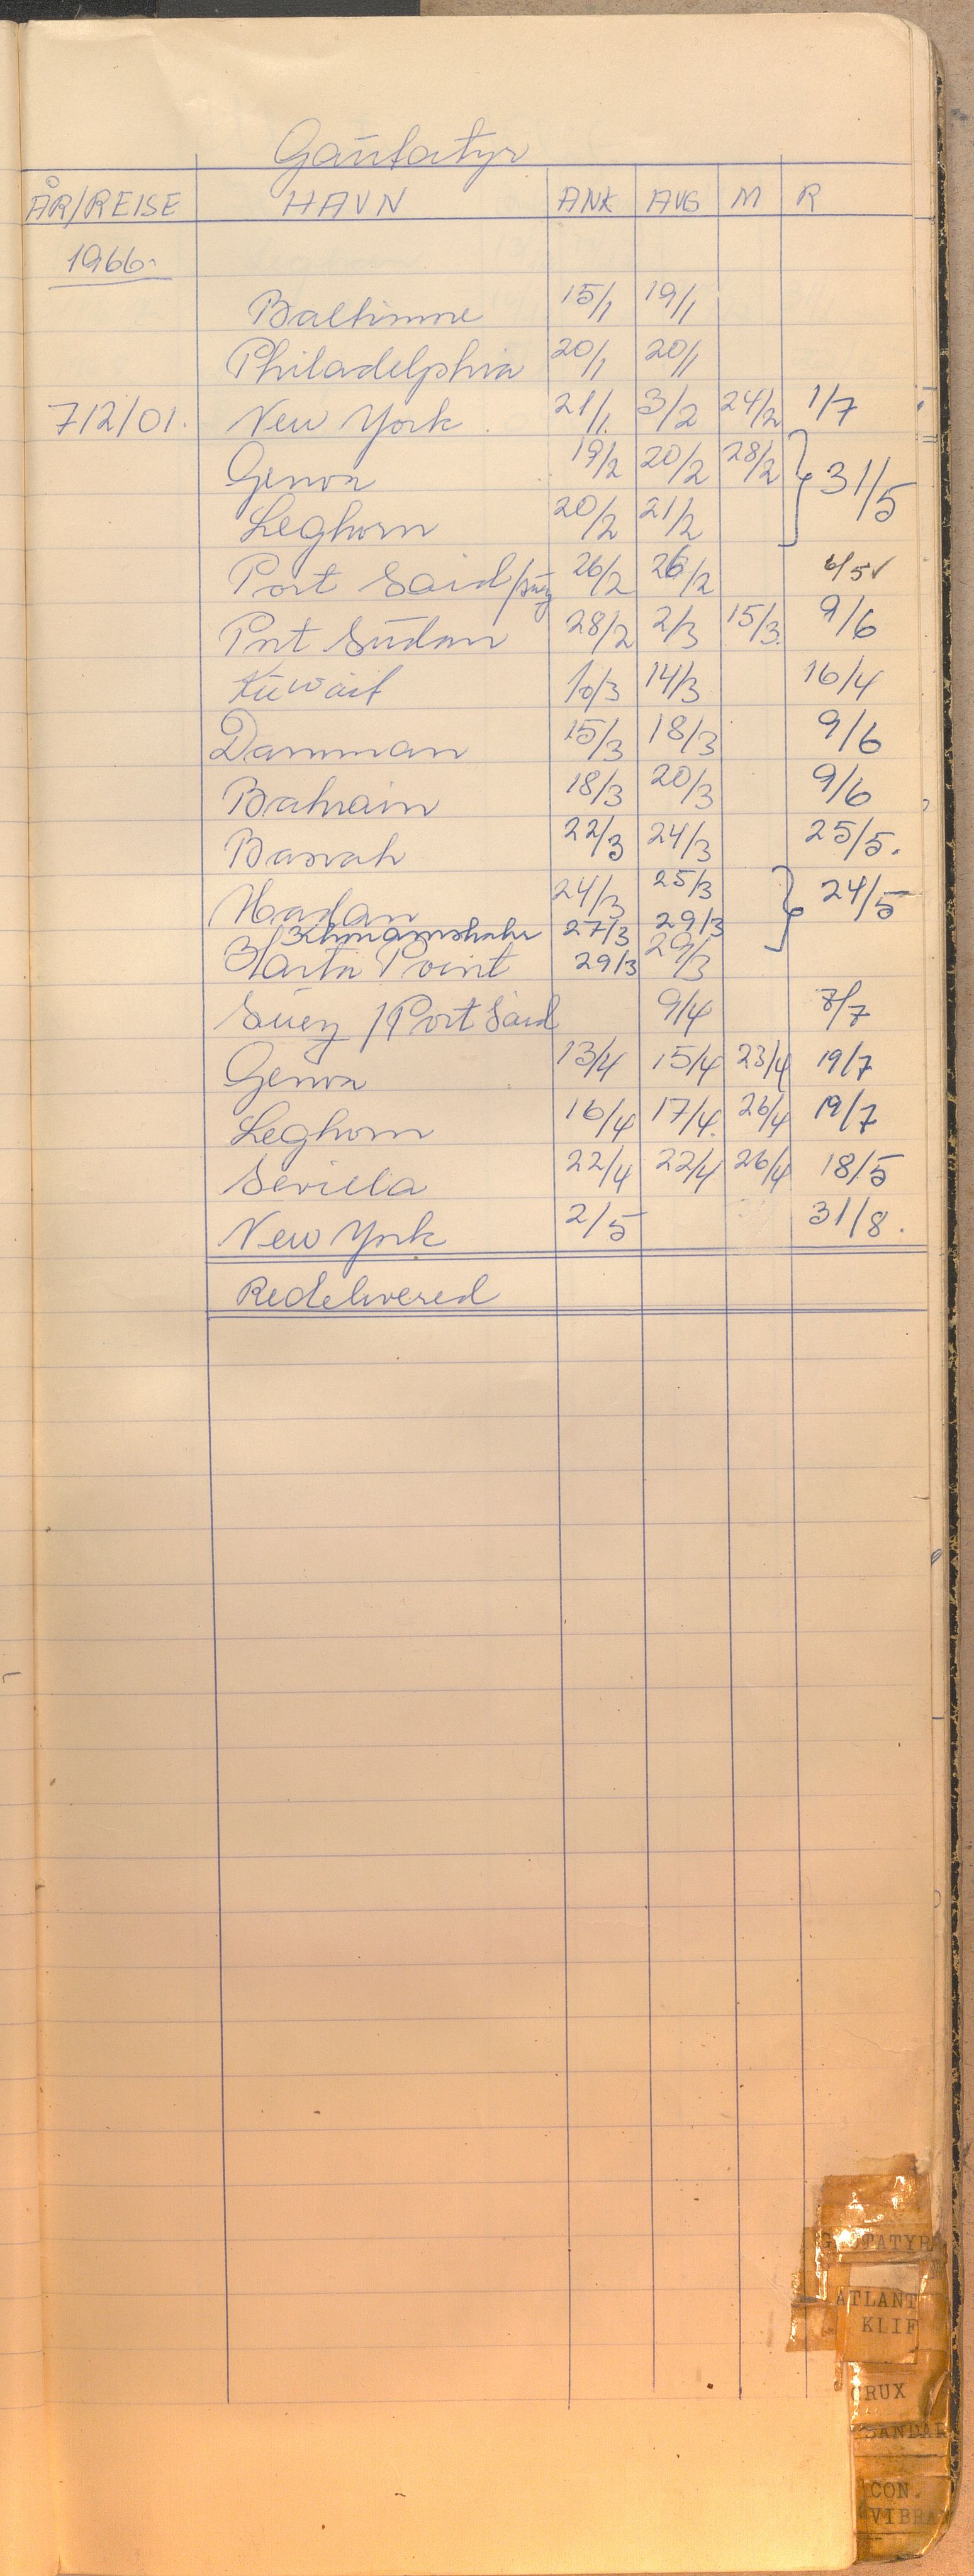 Gautatyr
ÅR/REISE HAVN ANK AVG M R
1966.
Baltimore 15/1 19/1
Philadelphia 20/1 20/1
712/01. New York 21/1 3/2 24/2 1/7
Genoa 19/2 20/2 28/2 } 31/5
Leghorn 20/2 21/2
Port Said/Suez 26/2 26/2 6/5 ✓
Port Sudan 28/2 2/3 15/3 9/6
Kuwait 10/3 14/3 16/4
Damman 15/3 18/3 9/6
Bahrain 18/3 20/3 9/6
Basrah 22/3 24/3 25/5.
Abadan 24/3 25/3 } 24/5
27/3 29/3
Point 29/3 29/3
Suez / Port Said 9/4 7/7
Genoa 13/4 15/4 23/4 19/7
Leghorn 16/4 17/4. 26/4 19/7
Sevilla 22/4 22/4 26/4 18/5
New York 2/5 31/8.
Redelivered
ATLANT
KLIF
CRUX
SANDAR
CON.
VIBRA